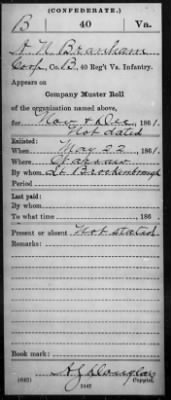 (CONFEDERATE.)
B 40 Va.
A N Branham
Corp, Co. B, 40 Reg't Va. Infantry.
Appears on
Company Muster Roll
of the organization named above,
for Nov & Dec, 1861.
Not dated
Enlisted:
When May 22, 1861.
Where
By whom Lt. Brockenbrough
Period
Last paid:
By whom
To what time, 186 .
Present or absent Not stated
Remarks:
Book mark:
(642)
Copyist.